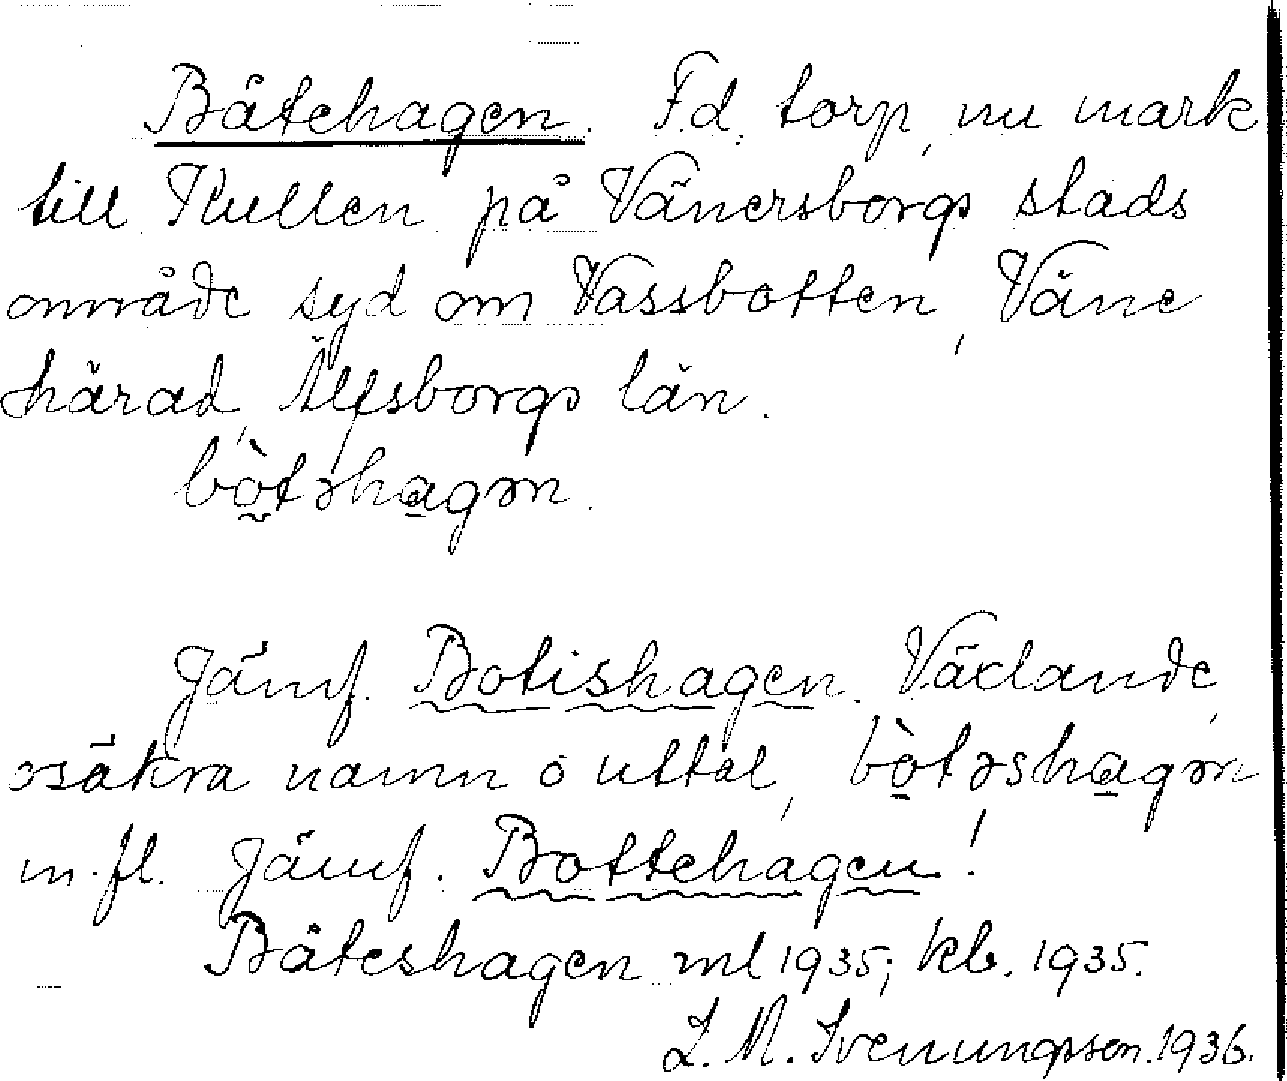 Båtehagen. F.d. torp, nu mark
till Kullen på Vänersborgs stads
område syd om Vassbotten, Väne
härad, Älfsborgs län.
bò̰təha̲gən.
Jämf. Botishagen. Växlande,
osäkra namn o uttal, bò̲təsha̲gən
m.fl. Jämf. Bottehagen!
Båteshagen ml 1935; kb. 1935.
L. M. Svenungsson. 1936.